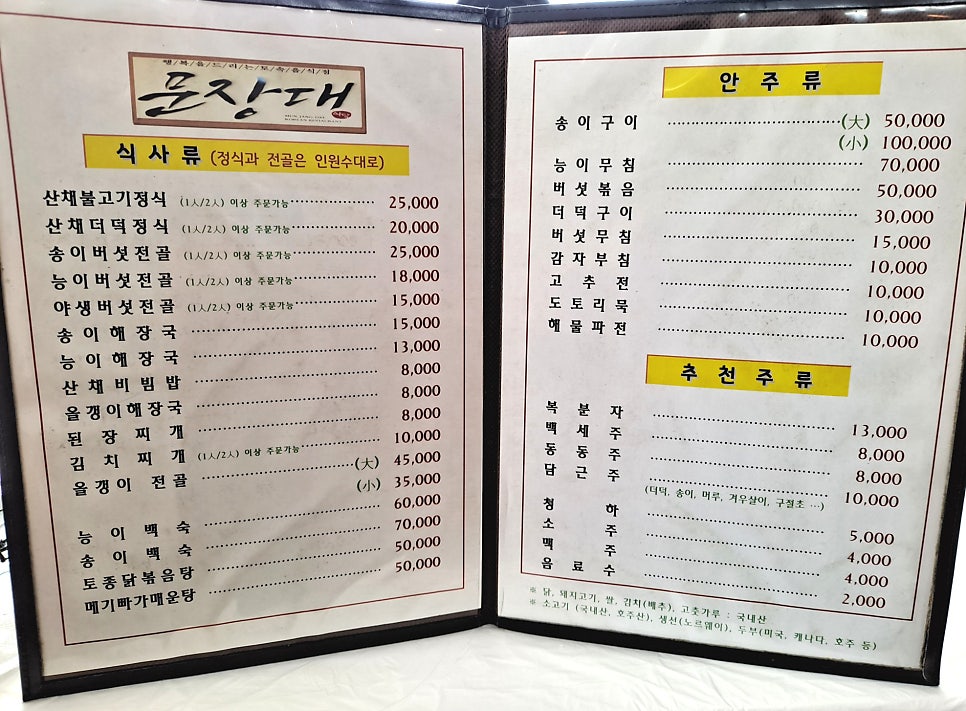 행/복/을/드/리/는/토/속/음/식/점
문장대
MUN JANG DAE
KOREAN RESTAURANT
식사류 (정식과 전골은 인원수대로)
산채불고기정식 (1人/2人) 이상 주문가능 25,000
산채더덕정식 (1人/2人) 이상 주문가능 20,000
송이버섯전골 (1人/2人) 이상 주문가능 25,000
능이버섯전골 (1人/2人) 이상 주문가능 18,000
야생버섯전골 (1人/2人) 이상 주문가능 15,000
송이해장국 15,000
능이해장국 13,000
산채비빔밥 8,000
올갱이해장국 8,000
된장찌개 8,000
김치찌개 (1人/2人) 이상 주문가능 10,000
올갱이 전골 (大) 45,000
(小) 35,000
능이백숙 60,000
송이백숙 70,000
토종닭볶음탕 50,000
메기빠가매운탕 50,000
안주류
송이구이 (大) 50,000
(小) 100,000
능이무침 70,000
버섯볶음 50,000
더덕구이 30,000
버섯무침 15,000
감자부침 10,000
고추전 10,000
도토리묵 10,000
해물파전 10,000
추천주류
복분자 13,000
백세주 8,000
동동주 8,000
담근주 10,000
(더덕, 송이, 머루, 겨우살이, 구절초 …)
청하 5,000
소주 4,000
맥주 4,000
음료수 2,000
※ 닭, 돼지고기, 쌀, 김치(배추), 고춧가루 : 국내산
※ 소고기 (국내산, 호주산), 생선(노르웨이), 두부(미국, 캐나다, 호주 등)